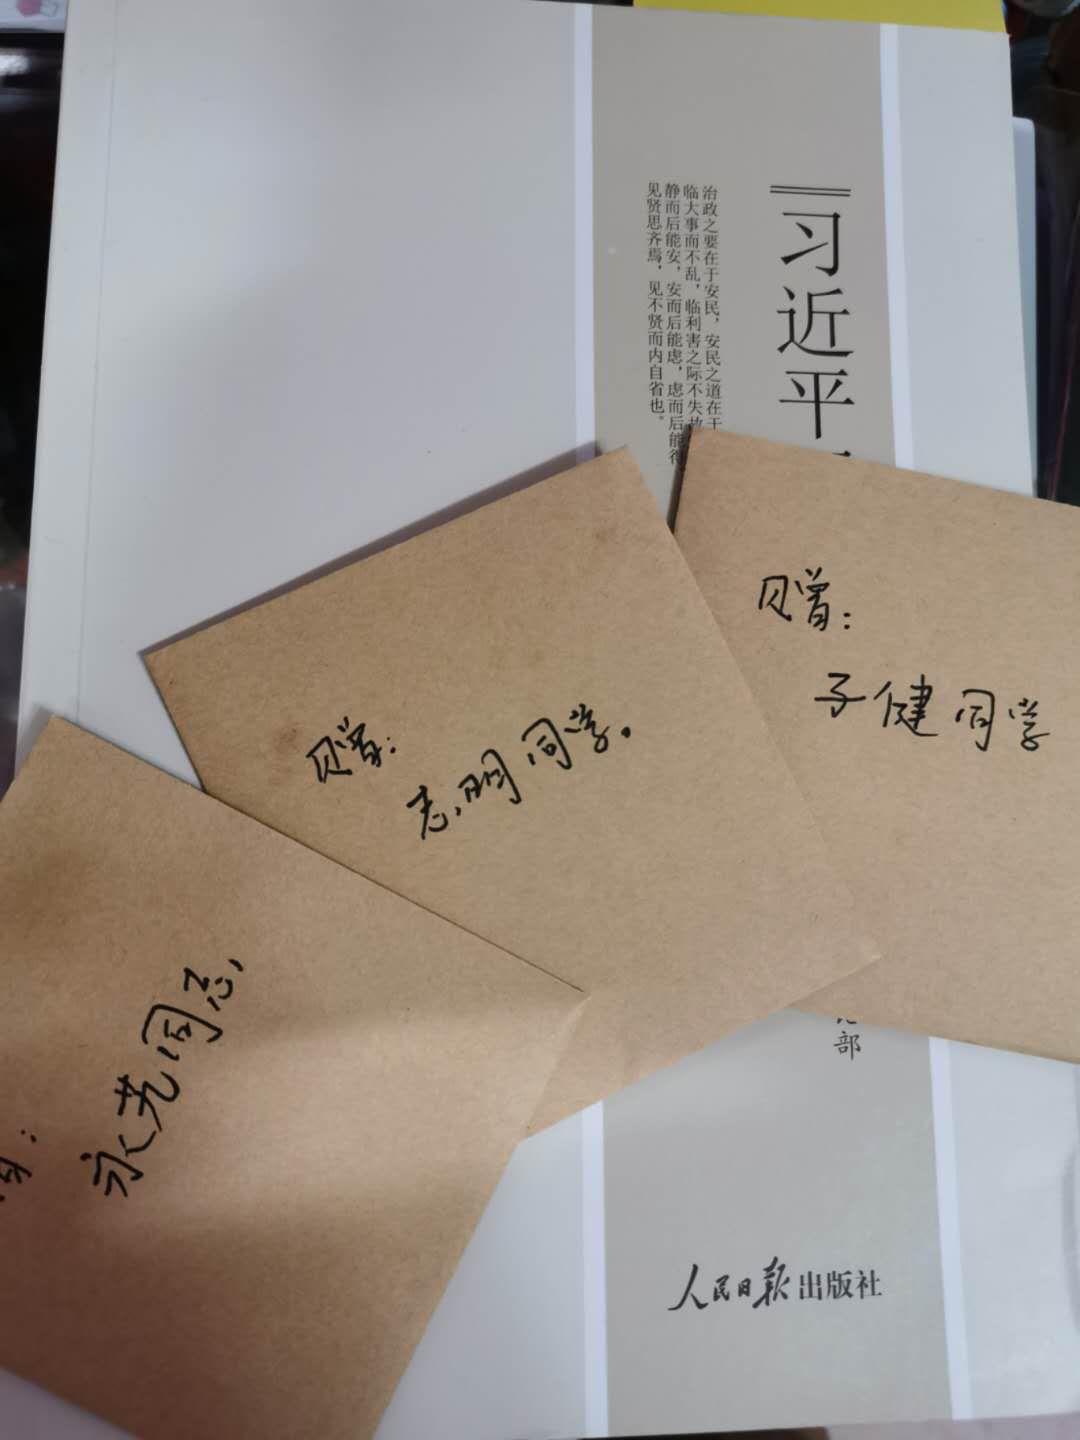 习近平
治政之要在于安民，安民之道在于
临大事而不乱，临利害之际不失故
静而后能安，安而后能虑，虑而后能得
见贤思齐焉，见不贤而内自省也。
赠：
子健同学
赠：
志明同学。
永艺同志
部
人民日报出版社